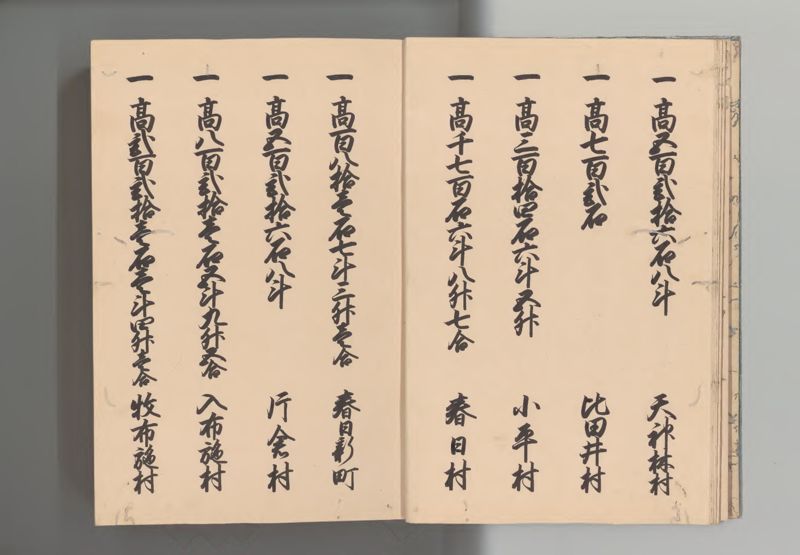 一 高五百弐拾六石八斗 天神林村
一 高七百弐石 比田井村
一 高三百拾四石六斗五升 小平村
一 高千七百石六斗八升七合 春日村
一 高百八拾壱石七斗三升壱合 春日新町
一 高五百弐拾六石八斗 片倉村
一 高八百弐拾壱石五斗九升五合 入布施村
一 高弐百弐拾壱石壱斗四升壱合 牧布施村